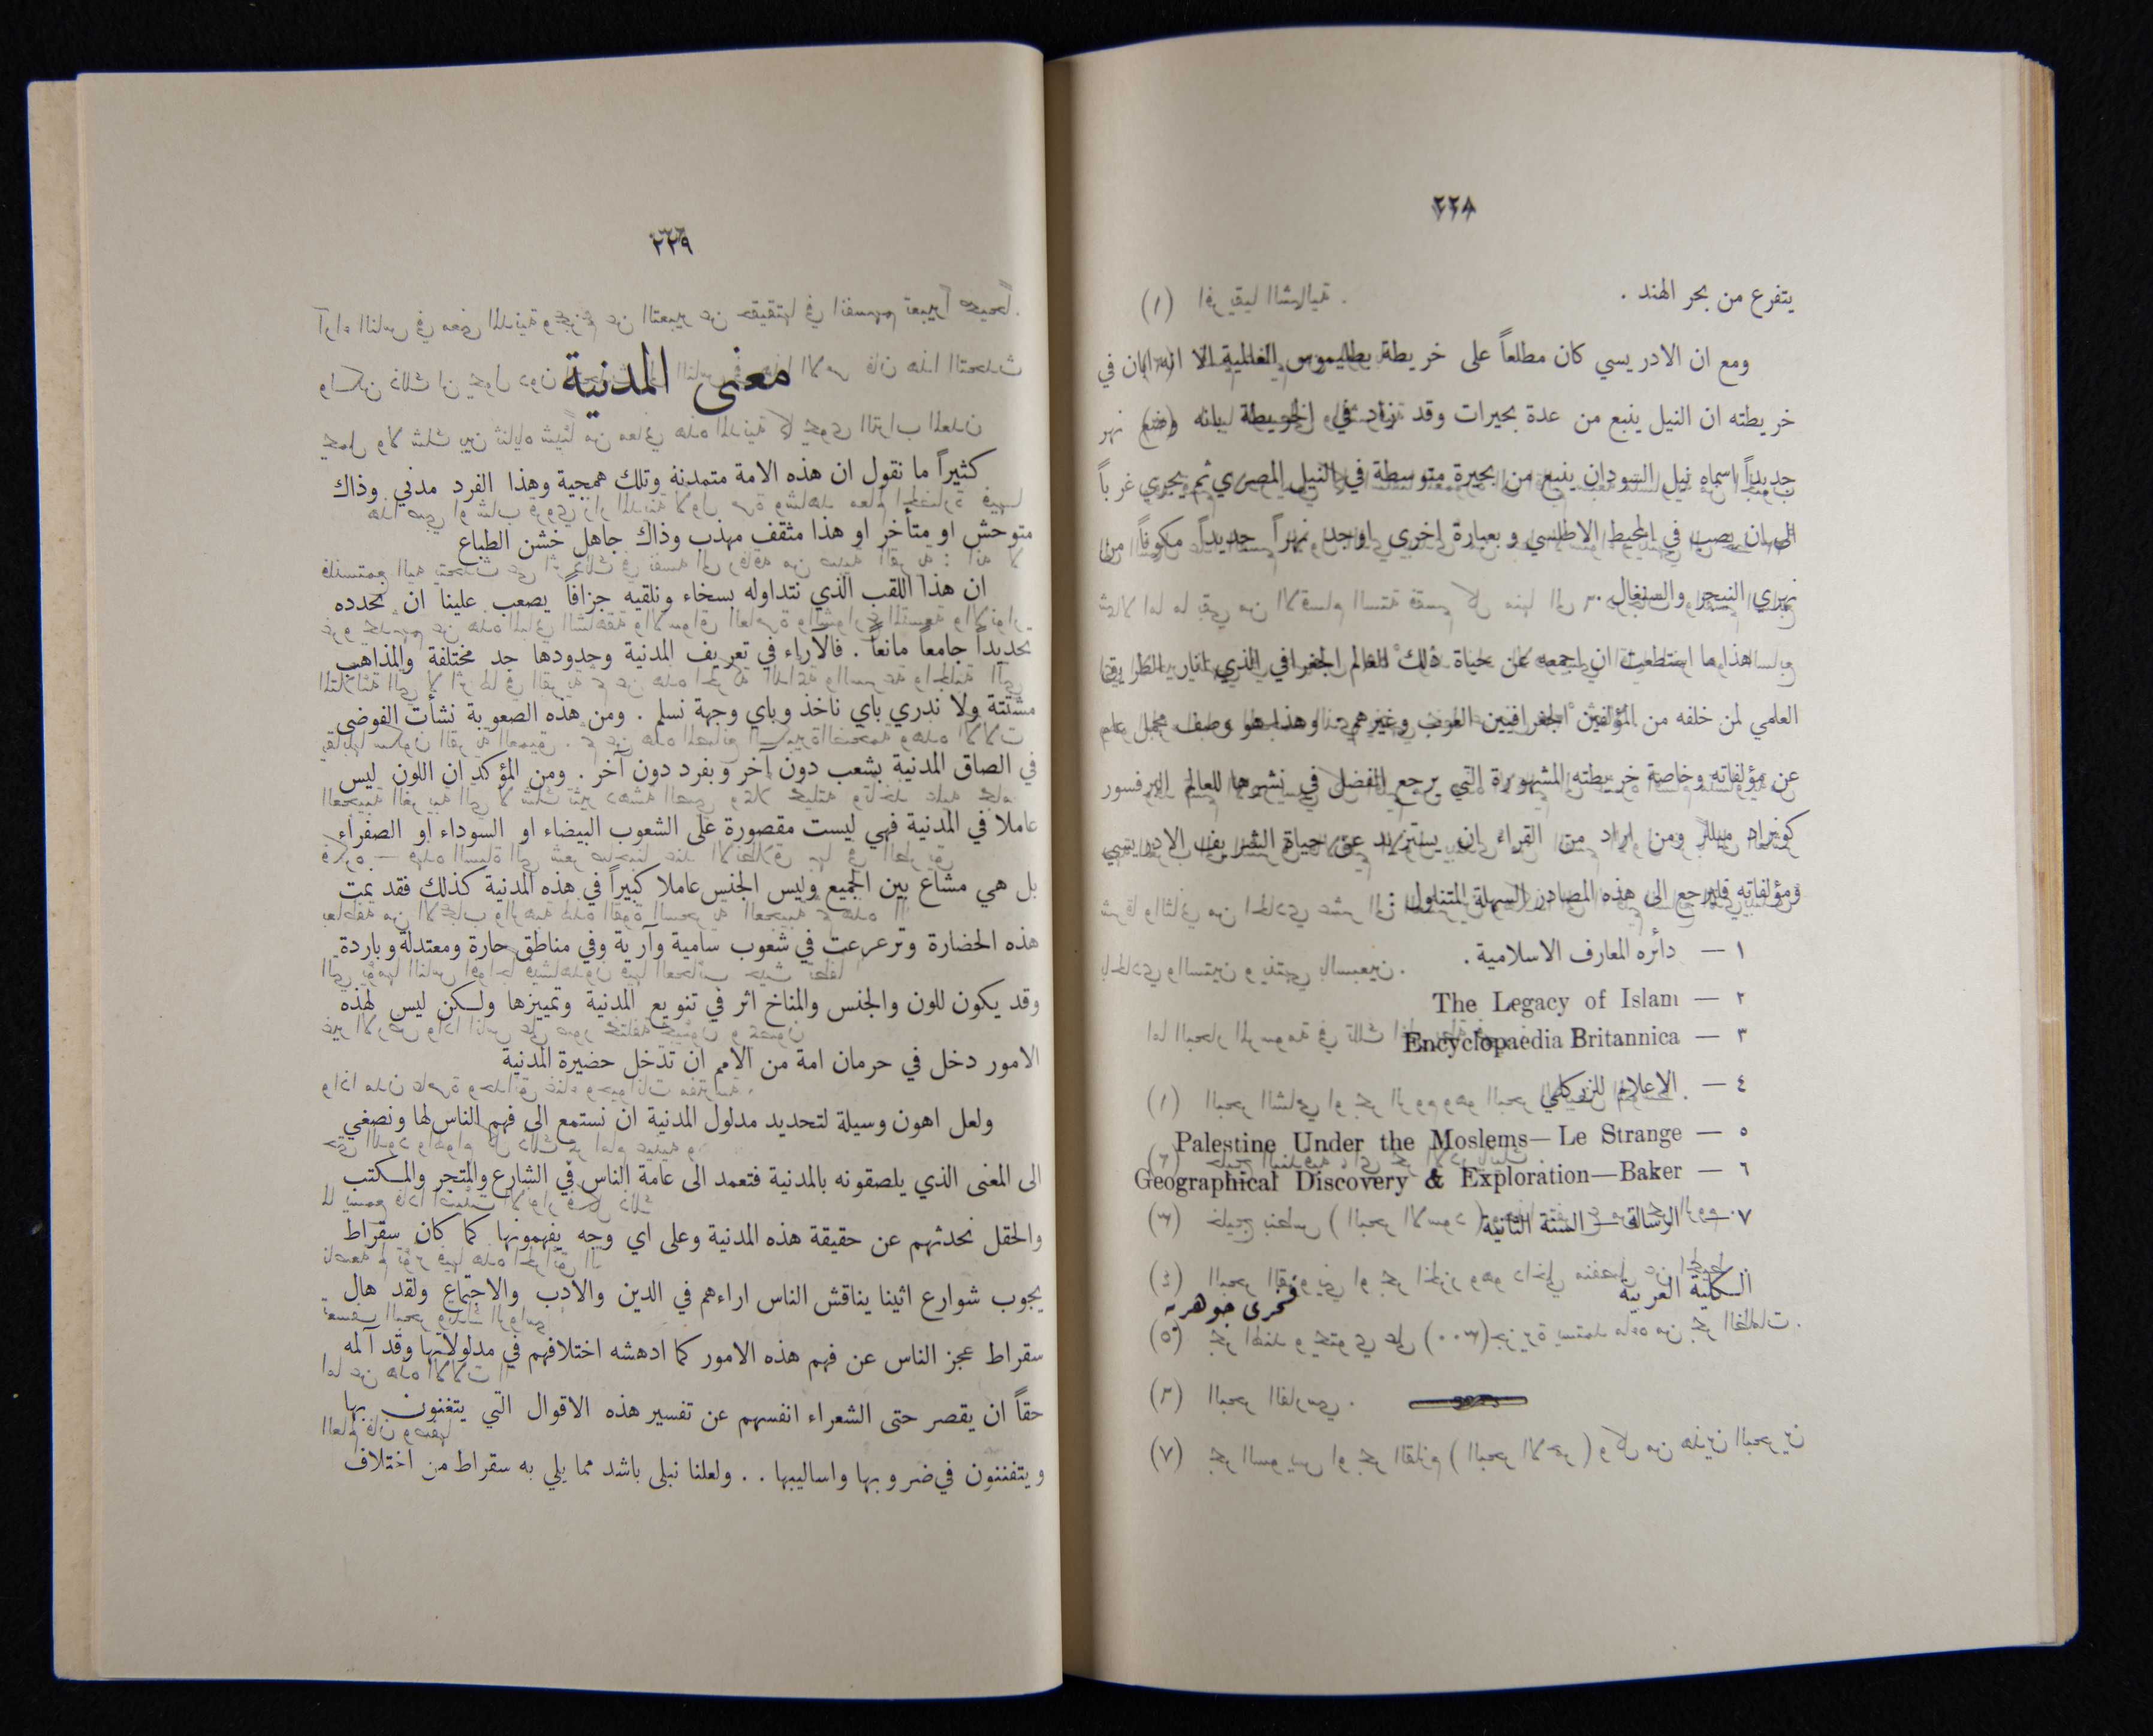 ٢٢٨
يتفرع من بحر الهند .
ومع ان الادريسي كان مطلعاً على خريطة بطليموس العالمية الا انه ابان في
خريطته ان النيل ينبع من عدة بحيرات وقد زاد في الخريطة بانه وضع نهر
جديداً اسماه نيل السودان ينبع من بحيرة متوسطة في النيل المصري ثم يجري غرباً
الى ان يصب في المحيط الاطلسي وبعبارة اخرى اوجد نهراً جديداً مكوناً من
نهري النيجر والسنغال .
هذا ما استطعت ان اجمعه عن حياة ذلك العالم الجغرافي الذي انار الطريق
العلمي لمن خلفه من المؤلفين الجغرافيين العرب وغيرهم . وهذا هو وصف مجمل عام
عن مؤلفاته وخاصة خريطته المشهورة التي يرجع الفضل في نشرها للعالم البرفسور
كونراد ميللر ومن اراد من القراء ان يستزيد عن حياة الشريف الادريسي
ومؤلفاته فليرجع الى هذه المصادر السهلة المتناول :
١ — دائره المعارف الاسلامية .
٢ — The Legacy of Islam
٣ — Encyclopaedia Britannica
٤ — الاعلام للزركلي
٥ — Palestine Under the Moslems—Le Strange
٦ — Geographical Discovery & Exploration—Baker
٧ — الرسالة — السنة الثانية
الكلية العربية
فخرى جوهريه
٢٢٩
معنى المدنية
كثيراً ما نقول ان هذه الامة متمدنة وتلك همجية وهذا الفرد مدني وذاك
متوحش او متأخر او هذا مثقف مهذب وذاك جاهل خشن الطباع
ان هذا اللقب الذي نتداوله بسخاء ونلقيه جزافاً يصعب علينا ان نحدده
تحديداً جامعاً مانعاً . فالآراء في تعريف المدنية وحدودها جد مختلفة والمذاهب
مشتتة ولا ندري باي ناخذ وباي وجهة نسلم . ومن هذه الصعوبة نشأت الفوضى
في الصاق المدنية بشعب دون آخر وبفرد دون آخر . ومن المؤكد ان اللون ليس
عاملا في المدنية فهي ليست مقصورة على الشعوب البيضاء او السوداء او الصفراء
بل هي مشاع بين الجميع وليس الجنس عاملا كبيراً في هذه المدنية كذلك فقد نمت
هذه الحضارة وترعرعت في شعوب سامية وآرية وفي مناطق حارة ومعتدلة وباردة
وقد يكون للون والجنس والمناخ اثر في تنويع المدنية وتمييزها ولكن ليس لهذه
الامور دخل في حرمان امة من الامم ان تدخل حضيرة المدنية
ولعل اهون وسيلة لتحديد مدلول المدنية ان نستمع الى فهم الناس لها ونصغي
الى المعنى الذي يلصقونه بالمدنية فتعمد الى عامة الناس في الشارع والمتجر والمكتب
والحقل نحدثهم عن حقيقة هذه المدنية وعلى اي وجه يفهمونها كما كان سقراط
يجوب شوارع اثينا يناقش الناس اراءهم في الدين والادب والاجتماع ولقد هال
سقراط عجز الناس عن فهم هذه الامور كما ادهشه اختلافهم في مدلولاتها وقد آلمه
حقاً ان يقصر حتى الشعراء انفسهم عن تفسير هذه الاقوال التي يتغنون بها
ويتفننون في ضروبها واساليبها . . ولعلنا نبلى باشد مما بلي به سقراط من اختلاف